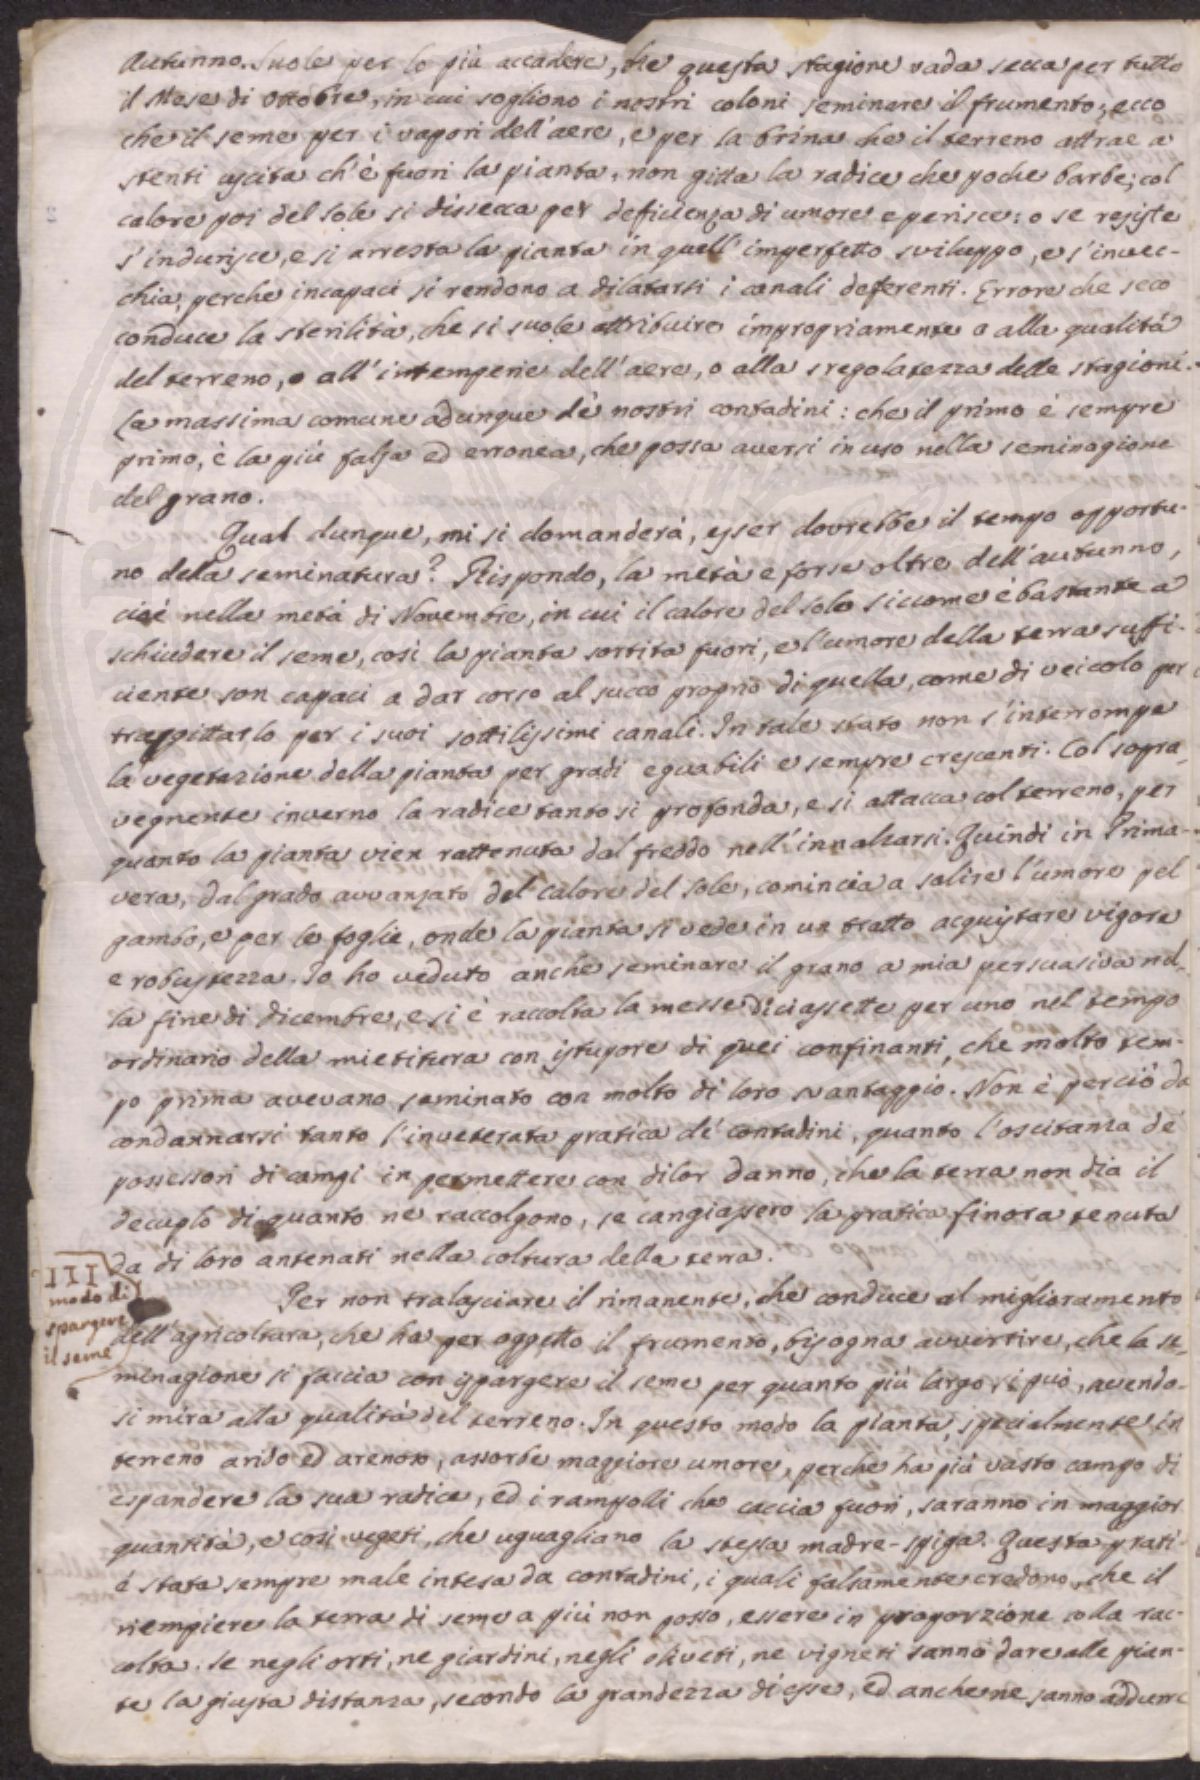 Autunno. Suole per lo più accadere, che questa stagione vada secca per tutto
il Mese di Ottobre, in cui sogliono i nostri coloni seminare il frumento; ecco
che il seme per i vapori dell'aere, e per la brina che il terreno attrae a
stenti uscita ch'è fuori la pianta, non gitta la radice che poche barbe; col
calore poi del sole si dissecca per deficienza di umore e perisce: o se resiste
s'indurisce, e si arresta la pianta in quell'imperfetto sviluppo, e s'invec-
chia, perche incapaci si rendono a dilatarsi i canali deferenti. Errore che seco
conduce la sterilità, che si suole attribuire impropriamente o alla qualità
del terreno, o all'intemperie dell'aere, o alla sregolatezza delle stagioni.
La massima comune adunque dè nostri contadini: che il primo è sempre
primo, è la più falsa ed erronea, che possa aversi in uso nella seminagione
del grano.
Qual dunque, mi si domanderà, esser dovrebbe il tempo opportu-
no della seminatura? Rispondo, la metà e forse oltre dell'autunno,
cioè nella metà di Novembre, in cui il calore del sole siccome è bastante a
schiudere il seme, così la pianta sortita fuori, e l'umore della terra suffi-
ciente son capaci a dar corso al succo proprio di quella, come di veicolo per
tragittarlo per i suoi sottilissimi canali. In tale stato non s'interrompe
la vegetazione della pianta per gradi eguabili e sempre crescenti. Col sopra-
vegnente inverno la radice tanto si profonda, e si attacca col terreno, per
quanto la pianta vien rattenuta dal freddo nell'innalzarsi. Quindi in Prima-
vera, dal grado avvanzato del calore del Sole, comincia a salire l'umore pel
gambo, e per le foglie, onde la pianta si vede in un tratto acquistare vigore
e robustezza. Io ho veduto anche seminare il grano a mia persuasiva nel-
la fine di dicembre, e si è raccolta la messe diciassette per uno nel tempo
ordinario della mietitura con istupore di quei confinanti, che molto tem-
po prima avevano seminato con molto di loro svantaggio. Non è perciò da
condannarsi tanto l'inveterata pratica dè contadini, quanto l'oscitanza dè
possessori di campi in permettere con di lor danno, che la terra non dia il
decuplo di quanto ne raccolgono, se cangiassero la pratica finora tenuta
da di loro antenati nella coltura della terra.
III
modo di
spargere
il seme
Per non tralasciare il rimanente, che conduce al miglioramento
dell'agricoltura, che ha per oggetto il frumento, bisogna avvertire, che la se-
minagione si faccia con ispargere il seme per quanto più largo si può, avendo-
si mira alla qualità del terreno. In questo modo la pianta, specialmente in
terreno arido ed arenoso, assorbe maggiore umore, perche ha più vasto campo di
espandere la sua radice, ed i rampolli che caccia fuori, saranno in maggior
quantità, e così vegeti, che uguagliano la stessa madre-spiga. Questa prati-
è stata sempre male intesa da contadini, i quali falsamente credono, che il
riempiere la terra di seme a più non posso, essere in proporzione colla rac-
colta. Se negli orti, ne giardini, negli oliveti, ne vigneti sanno dare alle pian-
te la giusta distanza, secondo la grandezza di esse, ed anche ne sanno addurre